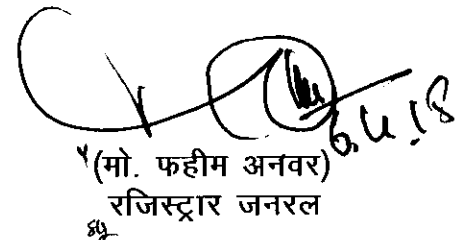 6.4.18
(मो. फहीम अनवर)
रजिस्ट्रार जनरल